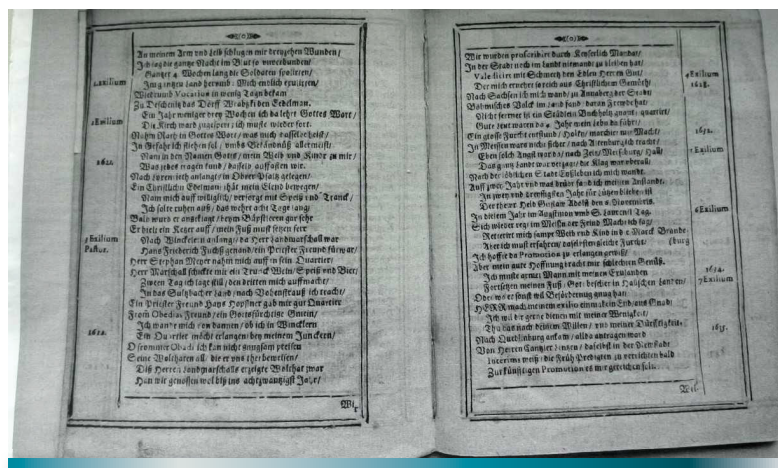 An meinem Arm vnd Leib schlugen mir dreyzehen Wunden/
Ich lag die gantze Nacht im Blut so vnverbunden/
Gantzer 4. Wochen lang die Soldaten
Im gantzen Land herumb. Mich endlich
Wiedrumb Vocatus in wenig Tagn bekam
Zu das Dorff bey den Eedelman.
Ein Jahr weniger drey Wochen ich da lehrt Gottes Wort/
Die Kirch ward ich muste wieder fort.
Nahm Rath in Gottes Wort/ was mich dasselbe heist/
In Gefahr ich fliehen sol/ allermeist/
Nam in den Namen Gotts/ mein Weib vnd Kinder zu mir/
Was jedes tragen kund/ daselbs auffasten wir.
Nach anlangt/ in Ober Pfaltz gelegen/
Ein Christlichn Edelman/ thät mein Elend bewegen/
Nam mich auff williglich/ versorgt mit Speiß vnd Tranck/
Ich solte ruhen auß/ das wehrt acht Tage lang;
Bald wurd er angeklagt/ beym Bäpstleren gar sehr
Er hielt ein Ketzer auff/ mein Fuß must setzen fort
Nach Wincklern anlang/ da Herr Landmarschall war
Hans Friederich Fuchs genand/ ein Priester Freund fürwar/
Herr Stephan Meyer nahm mich auff in sein Quartier/
Herr Marschall schickte mir ein Trunck Wein/ Speiß vnd Bier/
Zween Tag ich lage still/ den dritten mich auffmacht/
In das Sultzbacher Land/ nach Vohenstrauß ich tracht/
Ein Priester Freund Hans Hoffner gab mir gut Quartier
From Obedias Freund/ ein Gottsfürchtige Gmein/
Ich wandte mich von dannen/ ob ich in Wincklern
Ein Quartier möcht erlangen/ bey meinem Junckern/
O frommer Obadi ich kan nicht gnugsam preisen
Seine Wolthaten all/ die er vns ther beweisen/
Diß Herren Landmarschalls erzeigte Wolthat zwar
Han wir genossen wol biß ins achtzwantzigst Jahr/
Wir
1. Exilium
2 Exilium
1621.
3 Exilium
Pastor.
1622.
Wir wurden proscribirt durch Keyserlich Mandat/
In der Stadt noch im Landt niemandt zu bleiben hat/
Valediciret mit Schmertz den Edlen Herren Gut/
Der mich ernehret so reich aus Christlichem Gemüth/
Nach Sachsen ich mich wand/ in Annaberg der Stadt/
Böhmisches Volck im Land fand/ daran Frewde hat/
Nicht ferrner ist ein Städlein Buchholtz gnant/ quartiet/
Gute Leut waren da 4. Jahr mein Lebn da führt/
Ein grosse Furcht entstund/ Holck/ marchirt mit Macht/
In Meissen wars nicht sicher/ nach Altenburg ich tracht/
Eben solch Angst war da/ nach Zeitz/ Merseburg/ Hall/
Das gantz Land war verzagt/ die Klag war vberall.
Nach der löblichen Stadt Eyßleben ich mich wande.
Auff zwey Jahr vnd was drüber fand ich meinen Anstande.
In zwey vnd dreyssigsten Jahr/ für Lützen blieben ist
Der thewre Held Gustaff Adolff den 6. Novembris.
In diesem Jahr im Augstmon vmb S. Laurentii Tag.
Sich wieder regt im Meißn der Feind Macht ich sag/
Retterirt mich sampt Weib vnd Kind in d. Marck Brande
(burg
Aber ich must erfahren/ daselbst gleiche Furcht/
Ich hoffte da Promotion zu erlangen gewiß/
Aber mein gute Hoffnung bracht mir schlechten Genüß.
Ich muste armer Mann mit meinen Exulanden
Fortsetzen meinen Fuß: Gott bescher in Hallschen Landen/
Oder wo er sonst wil Befürderung gnug han:
HERR mach meinem exilio einmal ein End aus Gnad;
Ich wil dir gerne dienen mit meiner Wenigkeit/
Thu das nach deinem Willen/ vnd meiner Dürfftigkeit.
Nach Quedlinburg ankam/ allda antragen ward
Von Herren Cantzler Lentzen/ daselbst in der Newstadt
Interims weiß: die Früh Predigten zu verrichten bald
Zur künfftigen Promotion es mir gereichen solt.
4 Exilium
1628.
1632.
5 Exilium
6 Exilium
1634.
7 Exilium
1635.